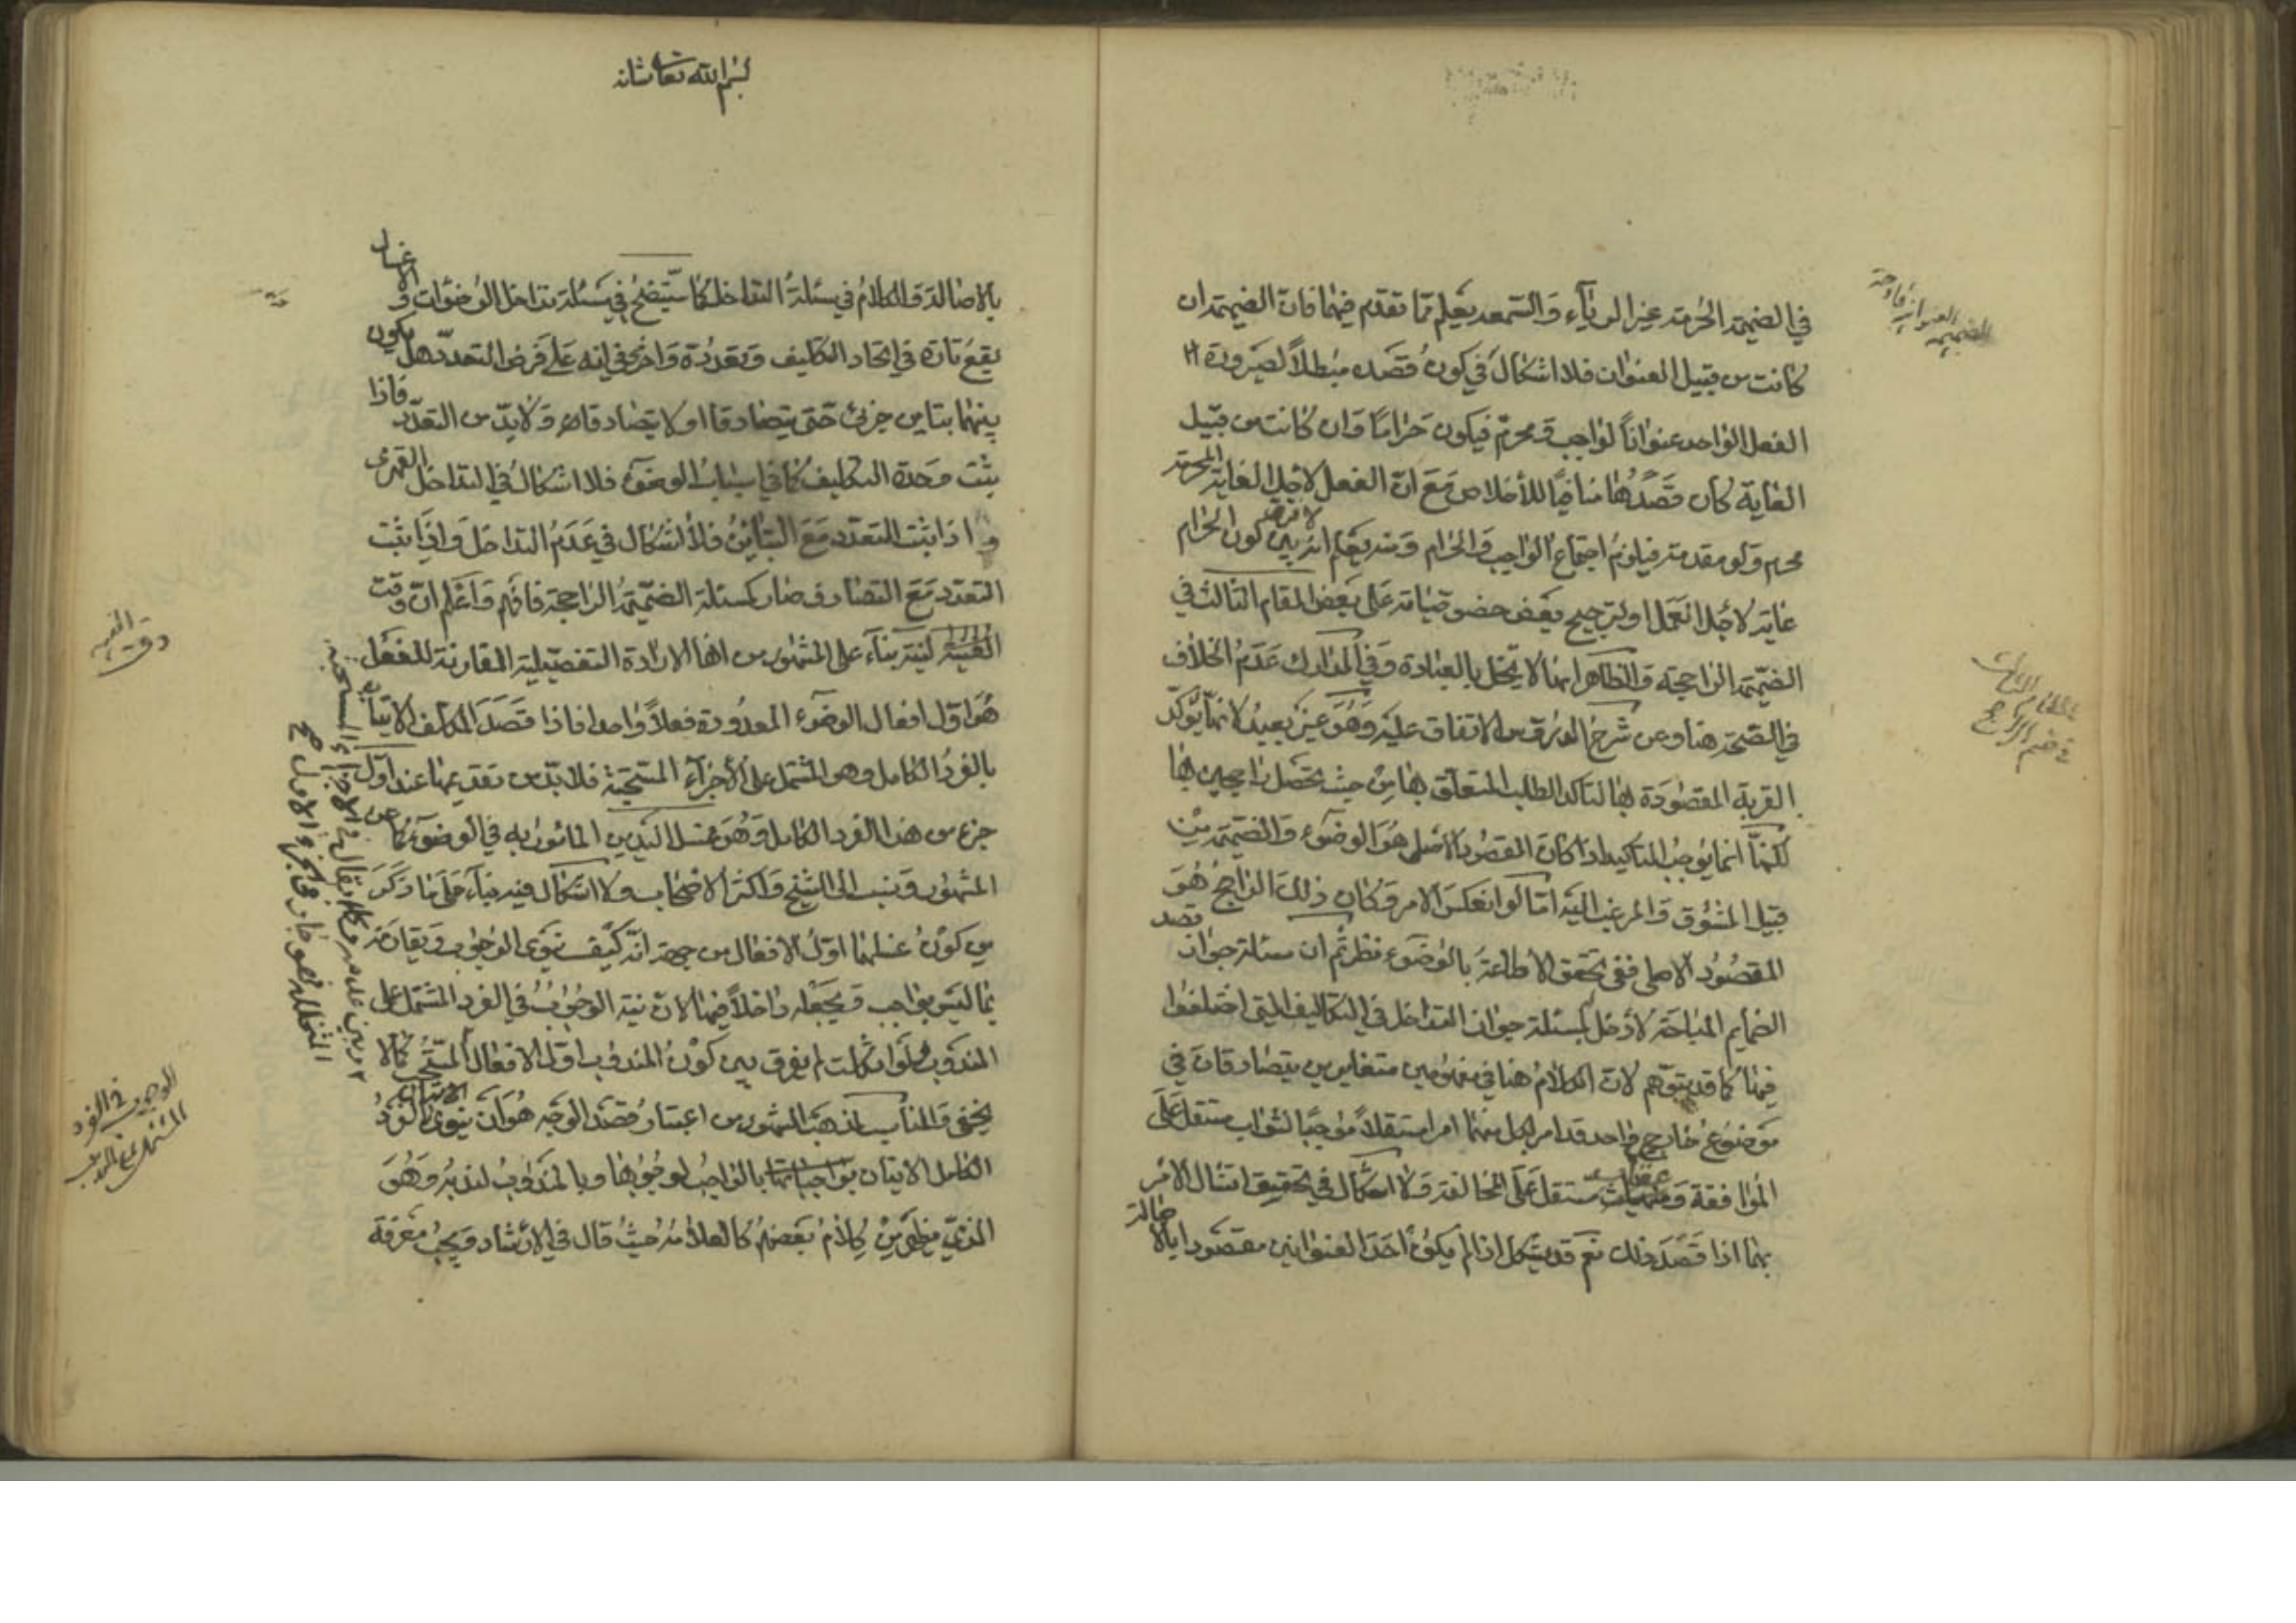 في الضميمة المحرمة غير الرياء والسمعة يعلم مما تقدم فيهما فان الضميمة ان
كانت من قبيل العنوان فلا اشكال في كون قصده مبطلاً لصيرورة
الفعل الواحد عنواناً لواجب ومحرم فيكون حراماً وان كانت من قبيل
الغاية كان قصدها منافياً للأخلاص مع ان الفعل لاجل الغاية المحرمة
محرم ولو مقدمة فيلزم اجتماع الواجب والحرام ومنه يعلم انه لا فرق بين كون الحرام
غاية لاجل العمل او لترجيح بعض خصوصياته على بعض المقام الثالث في
الضميمة الراجحة والظاهر انها لا يخل بالعبادة وفي المدارك عدم الخلاف
في الصحة هنا وعن شرح الدروس الاتفاق عليه وهو غير بعيد لانها يؤكد
القربة المقصودة بها لتاكد الطلب المتعلق بها من حيث تحصل راجحين بها
لكنها انما يوجب التاكيد اذا كان المقصود الاصلى هو الوضوء والضميمة من
قبيل المشوق والمرغب اليه اما لو انعكس الامر وكان ذلك الراجح هو
المقصود الاصلى ففى تحقق الاطاعة بالوضوء نظر ثم ان مسئلة جواز قصد
الضمايم المباحة لا دخل لمسئلة جواز التداخل في التكاليف التي اختلفوا
فيها كما قد يتوهم لان الكلام هنا في مفهومين متغايرين يتصادقان في
موضوع خارجي واحد قد امر بكل منهما امرا مستقلاً موجبًا لثواب مستقل على
الموافقة وعقاب مستقل على المخالفة ولا اشكال في تحقيق امتثال الامر
بهما اذا قصد ذلك نعم قد يشكل اذا لم يكن احد العنوانين مقصودا بالاصالة
الضميمة
عنوان
في ضم الراجح
بسم الله تعالى شانه
بالاصالة والكلام في مسئلة التداخل كما ستيضح في مسئلة تداخل الوضوءات والاغسال
يقع تارة في اتحاد التكليف وتعدده واخرى في انه على فرض التعدد هل يكون
بينهما تباين جزئي حتى يتصادقا او لا يتصادقا ولا بد من التعدد فاذا
ثبت وحدة التكليف كما في اسباب الوضوء فلا اشكال في التداخل القهرى
واذا ثبت التعدد مع التباين فلا اشكال في عدم التداخل واذا ثبت
التعدد مع التصادف صار كمسئلة الضميمة الراجحة فافهم واعلم ان وقت
النية بناء على المشهور من انها الارادة التفصيلية المقارنة للفعل
هو اول افعال الوضوء المعدودة فعلاً واحدا فاذا قصد المكلف الاتيان
بالفرد الكامل وهو المشتمل على الأجزاء المستحبة فلا بد من تقديمها عند اول
جزء من هذا الفرد الكامل وهو غسل اليدين المامور به في الوضوء كما عن
المشهور ونسب الى الشيخ واكثر الاصحاب ولا اشكال فيه بناء على ما ذكر
من كون غسلهما اول الافعال من جهة انه كيف ينوى الوجوب ويقارنه
بما ليس بواجب ويجعله داخلاً فيها لان نية الوجوب في الفرد المشتمل على
المندوب لو اشكلت لم يفرق بين كون المندوب اول الافعال المستحب كما لا
يخفى والمناسب لمذهب المشهور من اعتبار قصد الوجه هو ان ينوى بالفرد
الكامل الاتيان بالواجب لوجوبها وبالمندوب لندبه وهو
الذي يظهر من كلام بعضهم كالعلامة حيث قال في الارشاد ويجب معرفة
وقت النية
الوجوب في الفرد
المشتمل على المندوب